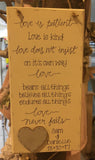 love is patient
Love is kind
love does not insist
on it's own way
love
bears all things
believes all things
endures all things
love
never fails